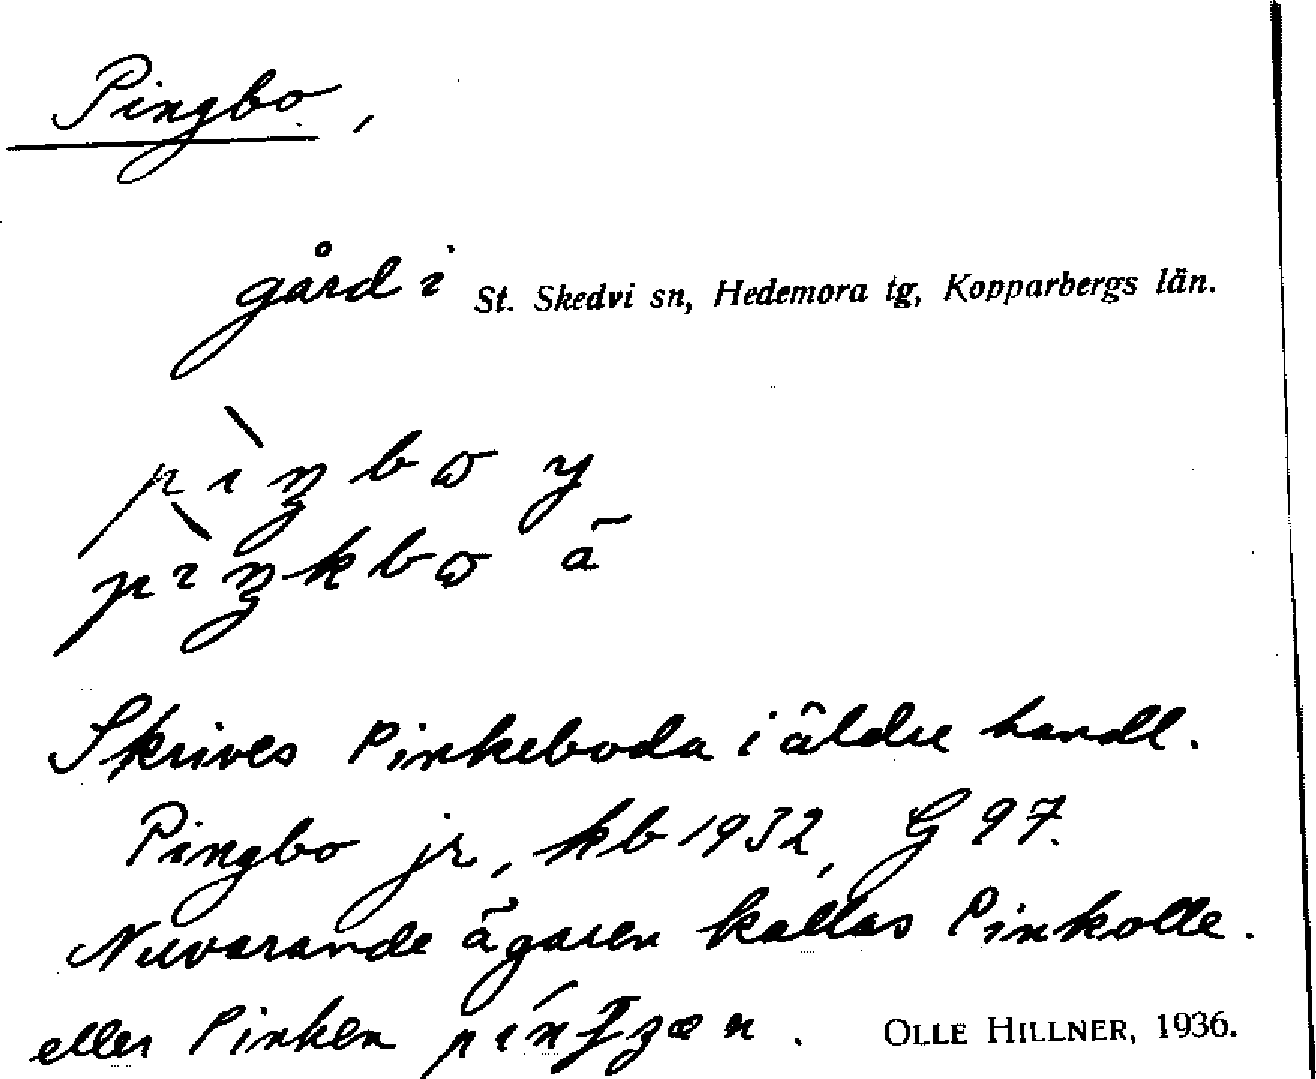 Pingbo,
gård i St. Skedvi sn, Hedemora tg, Kopparbergs län.
pìŋbɷ y
pìŋkbɷ ä
Skrives Pinkeboda i äldre handl.
Pingbo jr, kb 1932, G 97.
Nuvarande ägaren kallas Pinkolle.
eller Pinken . OLLE HILLNER, 1936.